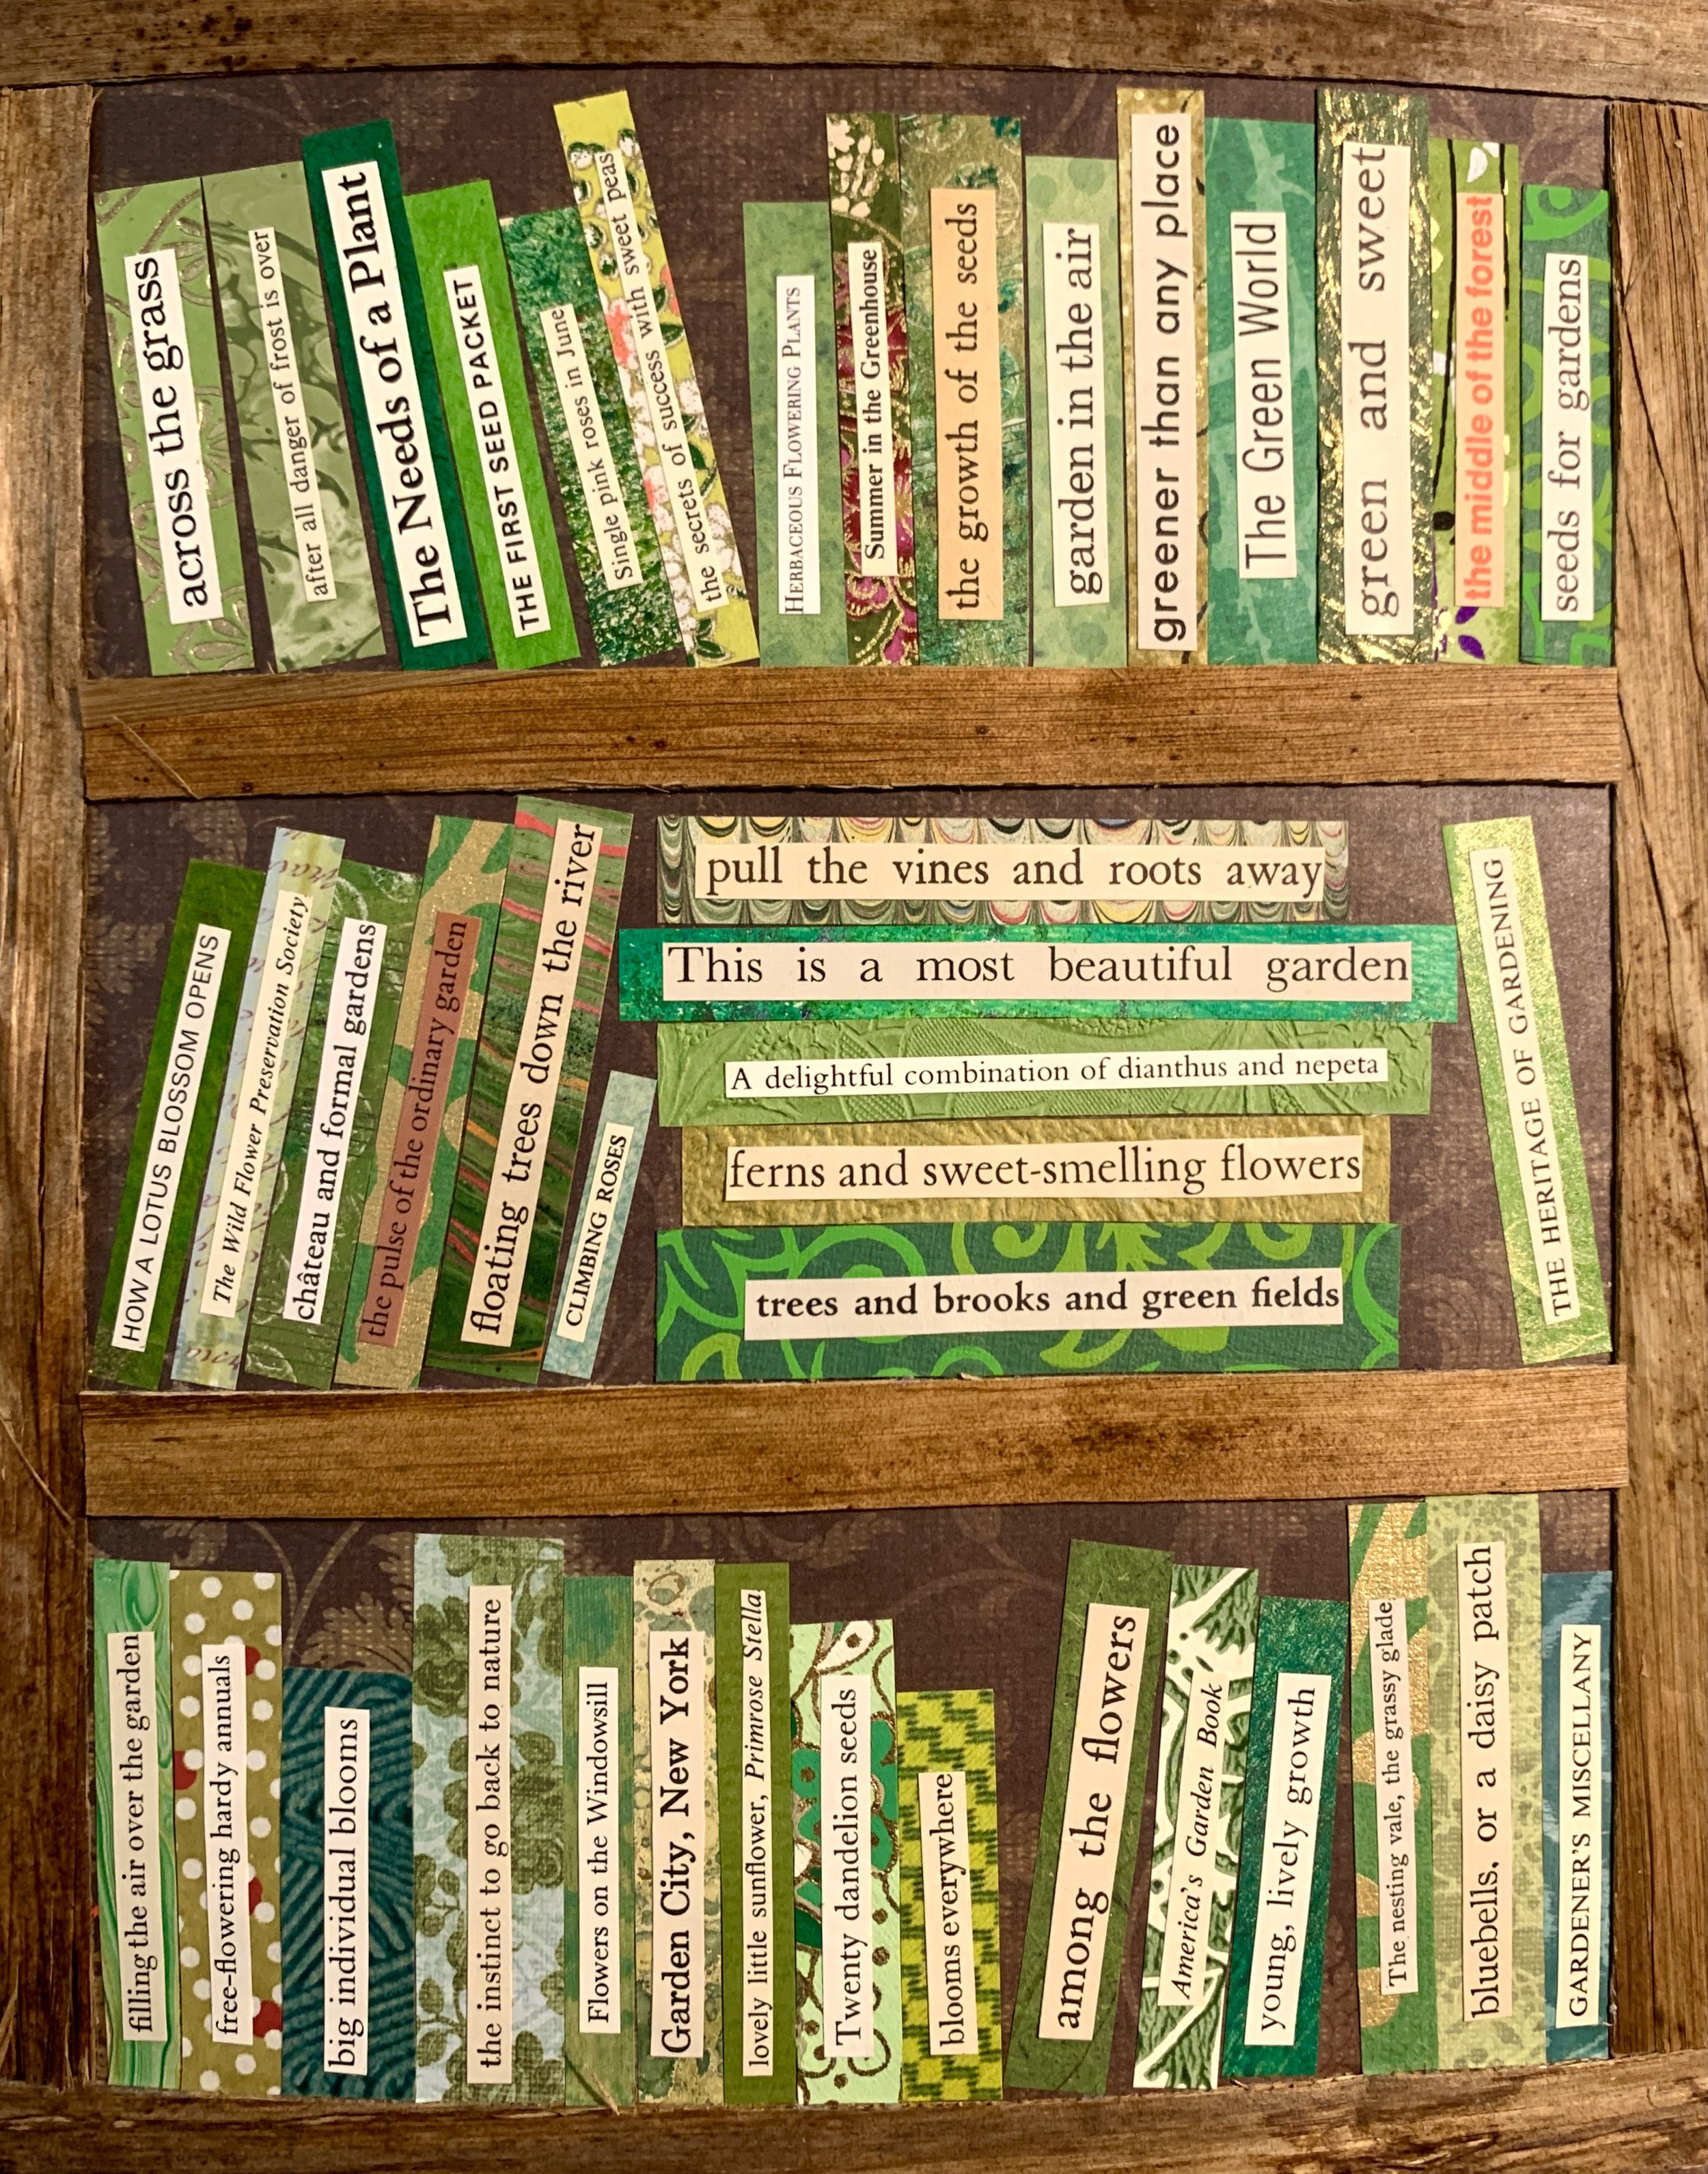 across the grass
after all danger of frost is over
The Needs of a Plant
THE FIRST SEED PACKET
Single pink roses in June
the secrets of success with sweet peas
HERBACEOUS FLOWERING PLANTS
Summer in the Greenhouse
the growth of the seeds
garden in the air
greener than any place
The Green World
green and sweet
the middle of the forest
seeds for gardens
HOW A LOTUS BLOSSOM OPENS
The Wild Flower Preservation Society
château and formal gardens
the pulse of the ordinary garden
floating trees down the river
CLIMBING ROSES
pull the vines and roots away
This is a most beautiful garden
A delightful combination of dianthus and nepeta
ferns and sweet-smelling flowers
trees and brooks and green fields
THE HERITAGE OF GARDENING
filling the air over the garden
free-flowering hardy annuals
big individual blooms
the instinct to go back to nature
Flowers on the Windowsill
Garden City, New York
lovely little sunflower, Primrose Stella
Twenty dandelion seeds
blooms everywhere
among the flowers
America's Garden Book
young, lively growth
The nesting vale, the grassy glade
bluebells, or a daisy patch
GARDENER'S MISCELLANY